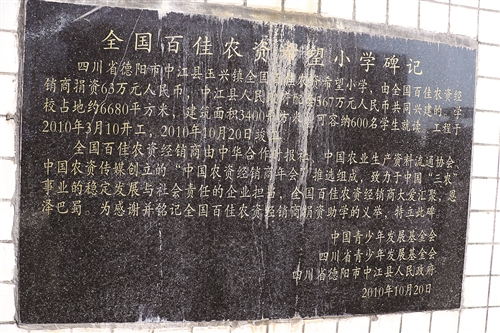 全国百佳农资希望小学碑记
四川省德阳市中江县玉兴镇全国百佳农资希望小学，由全国百佳农资经
销商捐资63万元人民币，中江县人民政府配套367万元人民币共同兴建的。学
校占地约6680平方米，建筑面积3400平方米，可容纳600名学生就读。工程于
2010年3月10日开工，2010年10月20日竣工。
全国百佳农资经销商由中华合作时报社、中国农业生产资料流通协会、
中国农资传媒创立的“中国农资经销商年会”推选组成，致力于中国“三农”
事业的稳定发展与社会责任的企业担当，全国百佳农资经销商大爱汇聚，恩
泽巴蜀。为感谢并铭记全国百佳农资经销商捐资助学的义举，特立此碑。
中国青少年发展基金会
四川省青少年发展基金会
四川省德阳市中江县人民政府
2010年10月20日